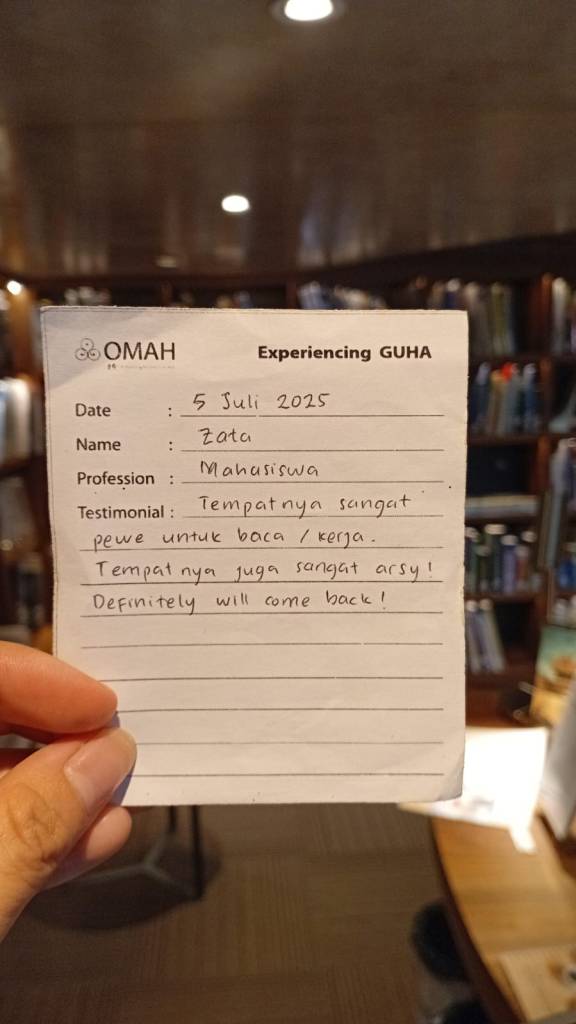 OMAH
Experiencing GUHA
Date : 5 Juli 2025
Name : Zata
Profession : Mahasiswa
Testimonial : Tempatnya sangat
pewe untuk baca / kerja.
Tempatnya juga sangat arsy!
Definitely will come back!